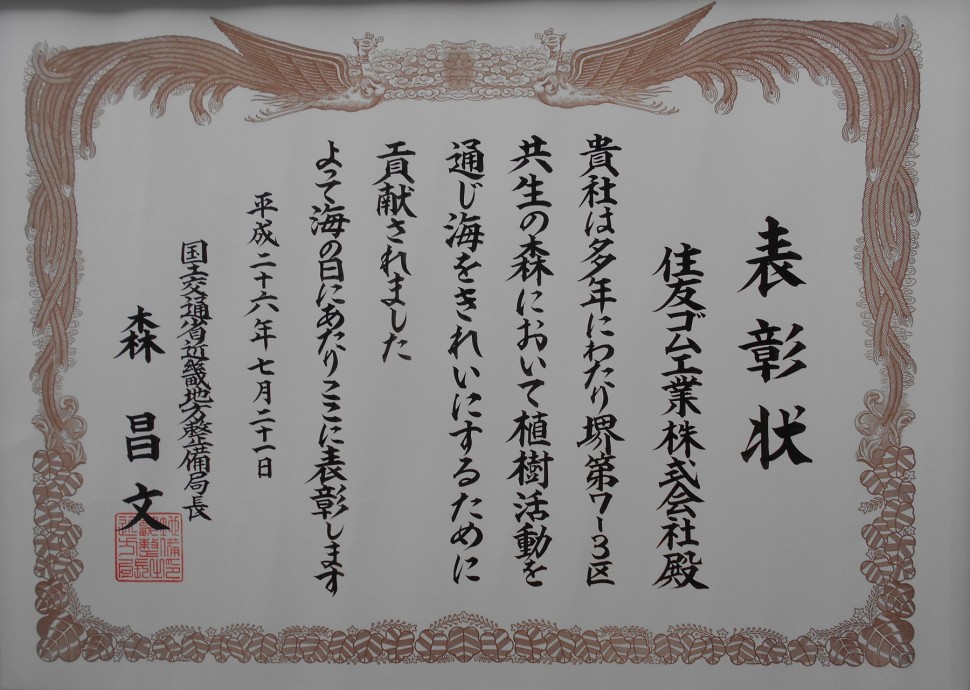 表彰状
住友ゴム工業株式会社殿
貴社は多年にわたり堺第7-3区
共生の森において植樹活動を
通じ海をきれいにするために
貢献されました
よって海の日にあたりここに表彰します
平成二十六年七月二十一日
国土交通省近畿地方整備局長
森昌文